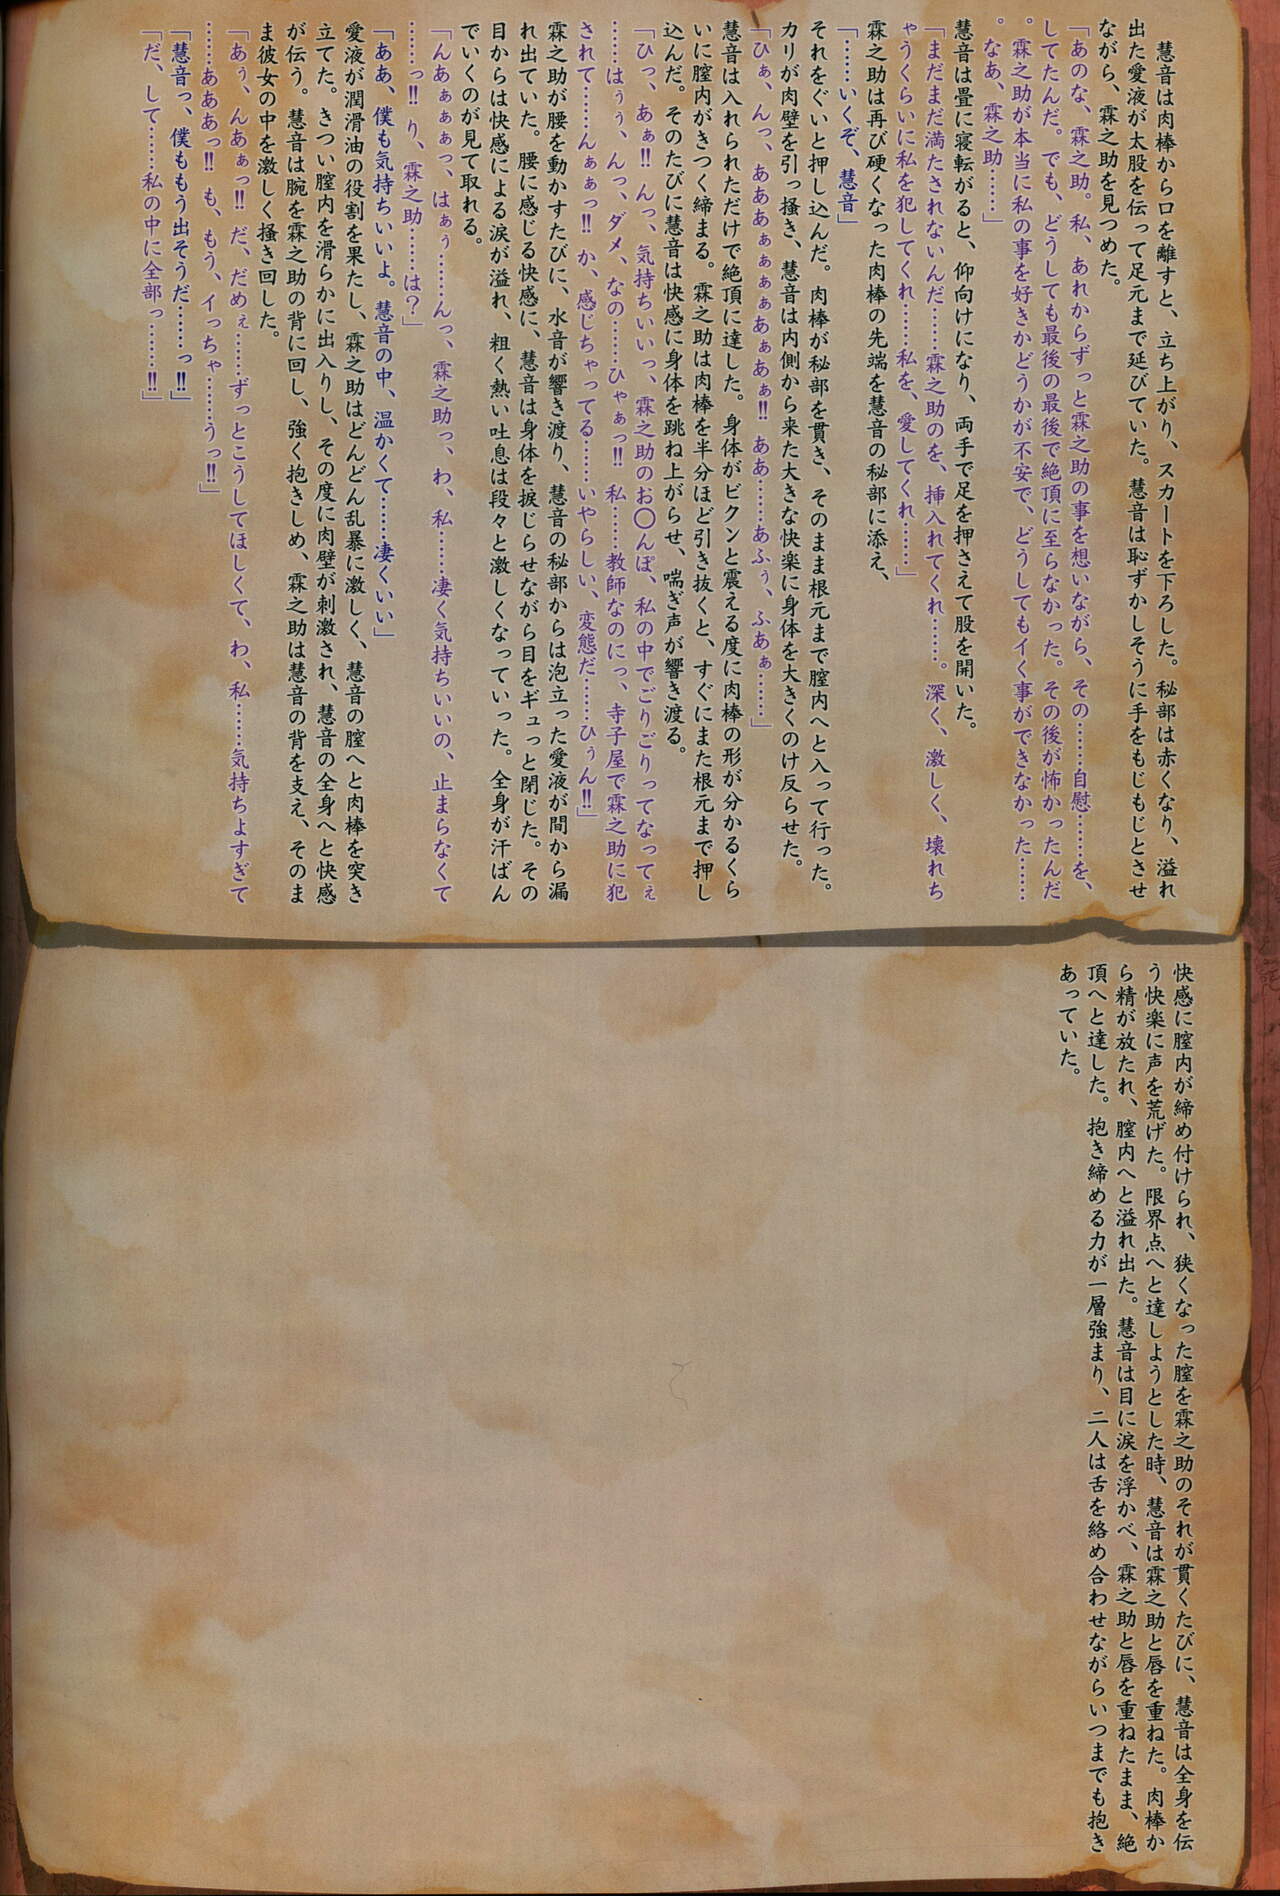 慧音は肉棒から口を離すと、立ち上がり、スカートを下ろした。秘部は赤くなり、溢れ
出た愛液が太股を伝って足元まで延びていた。慧音は恥ずかしそうに手をもじもじとさせ
ながら、霖之助を見つめた。
「あのな、霖之助。私、あれからずっと霖之助の事を想いながら、その……自慰……を、
してたんだ。でも、どうしても最後の最後で絶頂に至らなかった。その後が怖かったんだ
。霖之助が本当に私の事を好きかどうかが不安で、どうしてもイく事ができなかった……
。なあ、霖之助……」
慧音は畳に寝転がると、仰向けになり、両手で足を押さえて股を開いた。
「まだまだ満たされないんだ……霖之助のを、挿入れてくれ……。深く、激しく、壊れち
ゃうくらいに私を犯してくれ……私を、愛してくれ……」
霖之助は再び硬くなった肉棒の先端を慧音の秘部に添え、
「……いくぞ、慧音」
それをぐいと押し込んだ。肉棒が秘部を貫き、そのまま根元まで膣内へと入って行った。
カリが肉壁を引っ掻き、慧音は内側から来た大きな快楽に身体を大きくのけ反らせた。
「ひぁ、んっ、あああぁぁぁあぁあぁ!! ああ……あふぅ、ふあぁ……」
慧音は入れられただけで絶頂に達した。身体がビクンと震える度に肉棒の形が分かるくら
いに膣内がきつく締まる。霖之助は肉棒を半分ほど引き抜くと、すぐにまた根元まで押し
込んだ。そのたびに慧音は快感に身体を跳ね上がらせ、喘ぎ声が響き渡る。
「ひっ、あぁ!! んっ、気持ちいいっ、霖之助のお〇んぽ、私の中でごりごりってなってぇ
……はぅぅ、んっ、ダメ、なの……ひゃぁっ!! 私……教師なのにっ、寺子屋で霖之助に犯
されて……んぁぁっ!! か、感じちゃってる……いやらしい、変態だ……ひぅん!!」
霖之助が腰を動かすたびに、水音が響き渡り、慧音の秘部からは泡立った愛液が間から漏
れ出ていた。腰に感じる快感に、慧音は身体を捩じらせながら目をギュっと閉じた。その
目からは快感による涙が溢れ、粗く熱い吐息は段々と激しくなっていった。全身が汗ばん
でいくのが見て取れる。
「んあぁぁぁっ、はぁぅ……んっ、霖之助っ、わ、私……凄く気持ちいいの、止まらなくて
……っ!! り、霖之助……は？」
「ああ、僕も気持ちいいよ。慧音の中、温かくて……凄くいい」
愛液が潤滑油の役割を果たし、霖之助はどんどん乱暴に激しく、慧音の膣へと肉棒を突き
立てた。きつい膣内を滑らかに出入りし、その度に肉壁が刺激され、慧音の全身へと快感
が伝う。慧音は腕を霖之助の背に回し、強く抱きしめ、霖之助は慧音の背を支え、そのま
ま彼女の中を激しく掻き回した。
「あぅ、んあぁっ!! だ、だめぇ……ずっとこうしてほしくて、わ、私……気持ちよすぎて
……あああっ!! も、もう、イっちゃ……うっ!!」
「慧音っ、僕ももう出そうだ……っ!!」
「だ、して……私の中に全部っ……!!」
快感に膣内が締め付けられ、狭くなった膣を霖之助のそれが貫くたびに、慧音は全身を伝
う快楽に声を荒げた。限界点へと達しようとした時、慧音は霖之助と唇を重ねた。肉棒か
ら精が放たれ、膣内へと溢れ出た。慧音は目に涙を浮かべ、霖之助と唇を重ねたまま、絶
頂へと達した。抱き締める力が一層強まり、二人は舌を絡め合わせながらいつまでも抱き
あっていた。